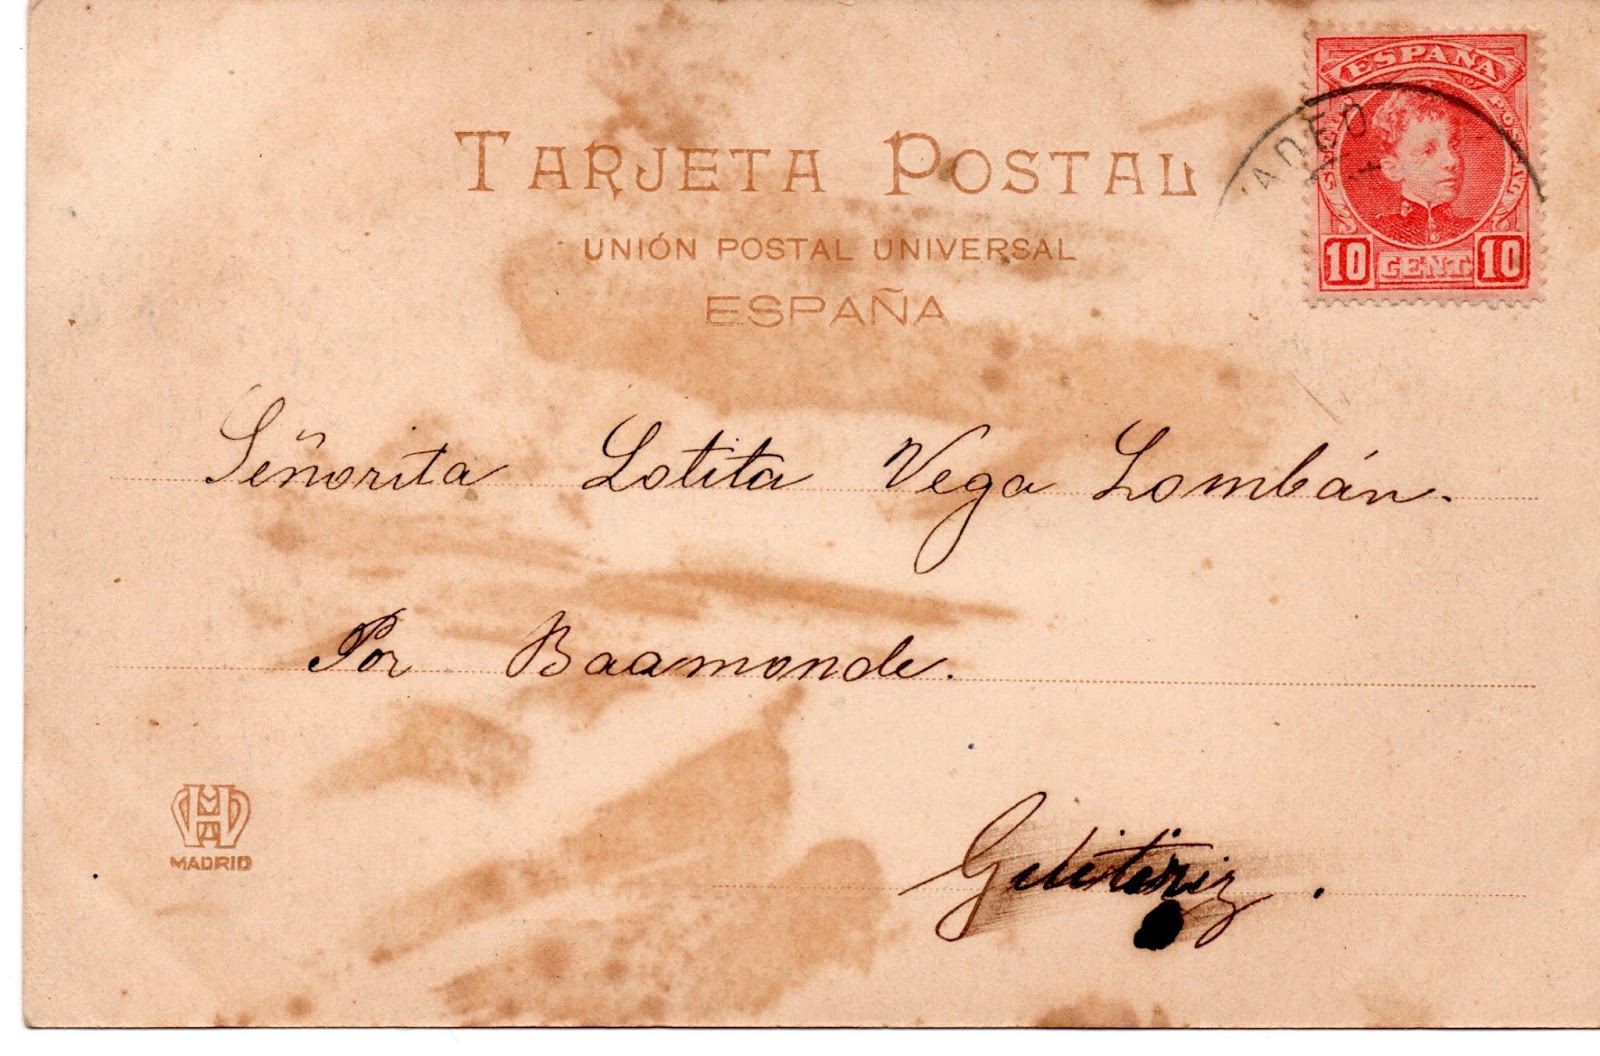 TARJETA POSTAL
UNIÓN POSTAL UNIVERSAL
ESPAÑA
ESPAÑA
10 CENT. 10
Señorita Lolita Vega Lombán.
Por Baamonde.
MADRID